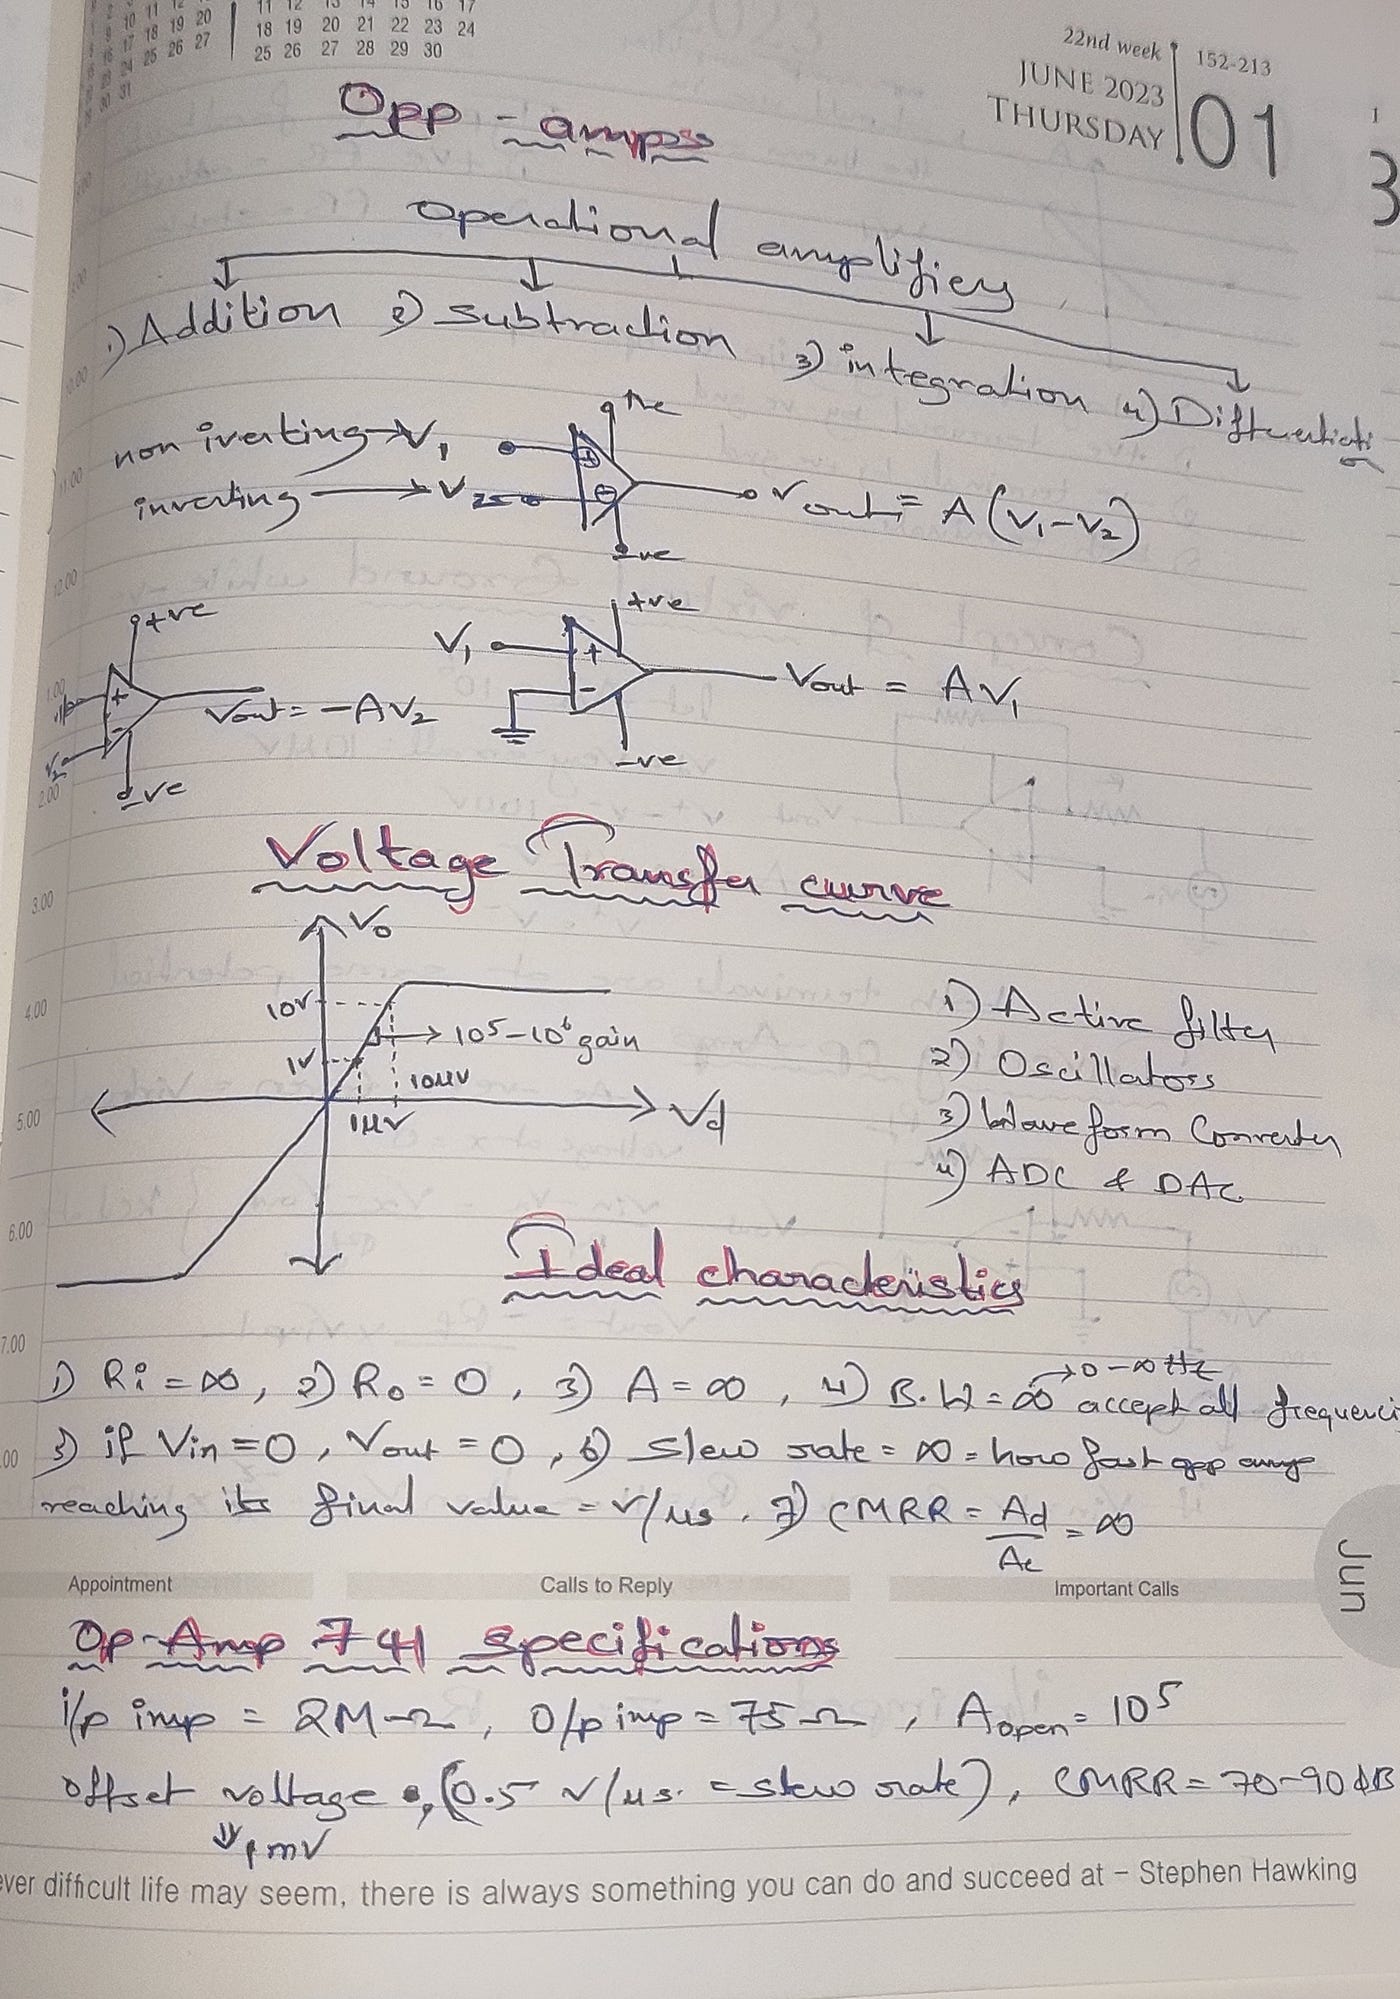 11 12 13 14 15 16 17
10 11 12
18 19 20 21 22 23 24
17 18 19 20
25 26 27 28 29 30
24 25 26 27
30 31
22nd week 152-213
JUNE 2023
THURSDAY 01
3
Opp - amps
operational amplifiers
1) Addition 2) Subtraction 3) integration 4) Differentiati
on
non iverting → V1 + +ve
inverting → V2 - Vout = A(V1-V2)
-ve
+ve +ve
V1 +
+ Vout = -AV2 - Vout = AV1
V2 -
-ve -ve
Voltage Transfer curve
Vo
10V
10^5-10^6 gain
1V
10μV
1μV
Vd
1) Active filter
2) Oscillators
3) Waveform Converter
4) ADC & DAC
Ideal characteristics
→ 0-∞ Hz
1) Ri = ∞, 2) Ro = 0, 3) A = ∞, 4) B.W = ∞ accept all frequenci
5) if Vin = 0, Vout = 0, 6) slew rate = ∞ = how fast opp amp
reaching its final value = V/μs. 7) CMRR = Ad/Ac = ∞
Appointment Calls to Reply Important Calls
Jun
Op-Amp 741 specifications
i/p imp = 2M-Ω, O/p imp = 75 Ω, Aopen = 10^5
offset voltage, (0.5 V/μs. = slew rate), CMRR = 70-90dB
1mV
ever difficult life may seem, there is always something you can do and succeed at – Stephen Hawking
1.00
2.00
3.00
4.00
5.00
6.00
7.00